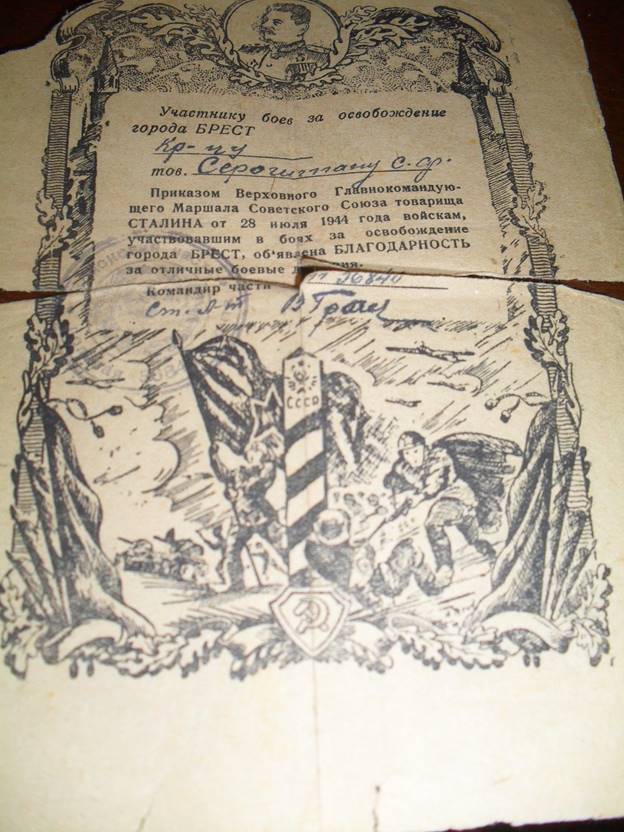 Участнику боев за освобождение
города БРЕСТ
Кр-цу
тов. С. Ф.
Приказом Верховного Главнокомандую-
щего Маршала Советского Союза товарища
СТАЛИНА от 28 июля 1944 года войскам,
участвовавшим в боях за освобождение
города БРЕСТ, об'явлена БЛАГОДАРНОСТЬ
за отличные боевые
Командир части
ст. л-т
СССР